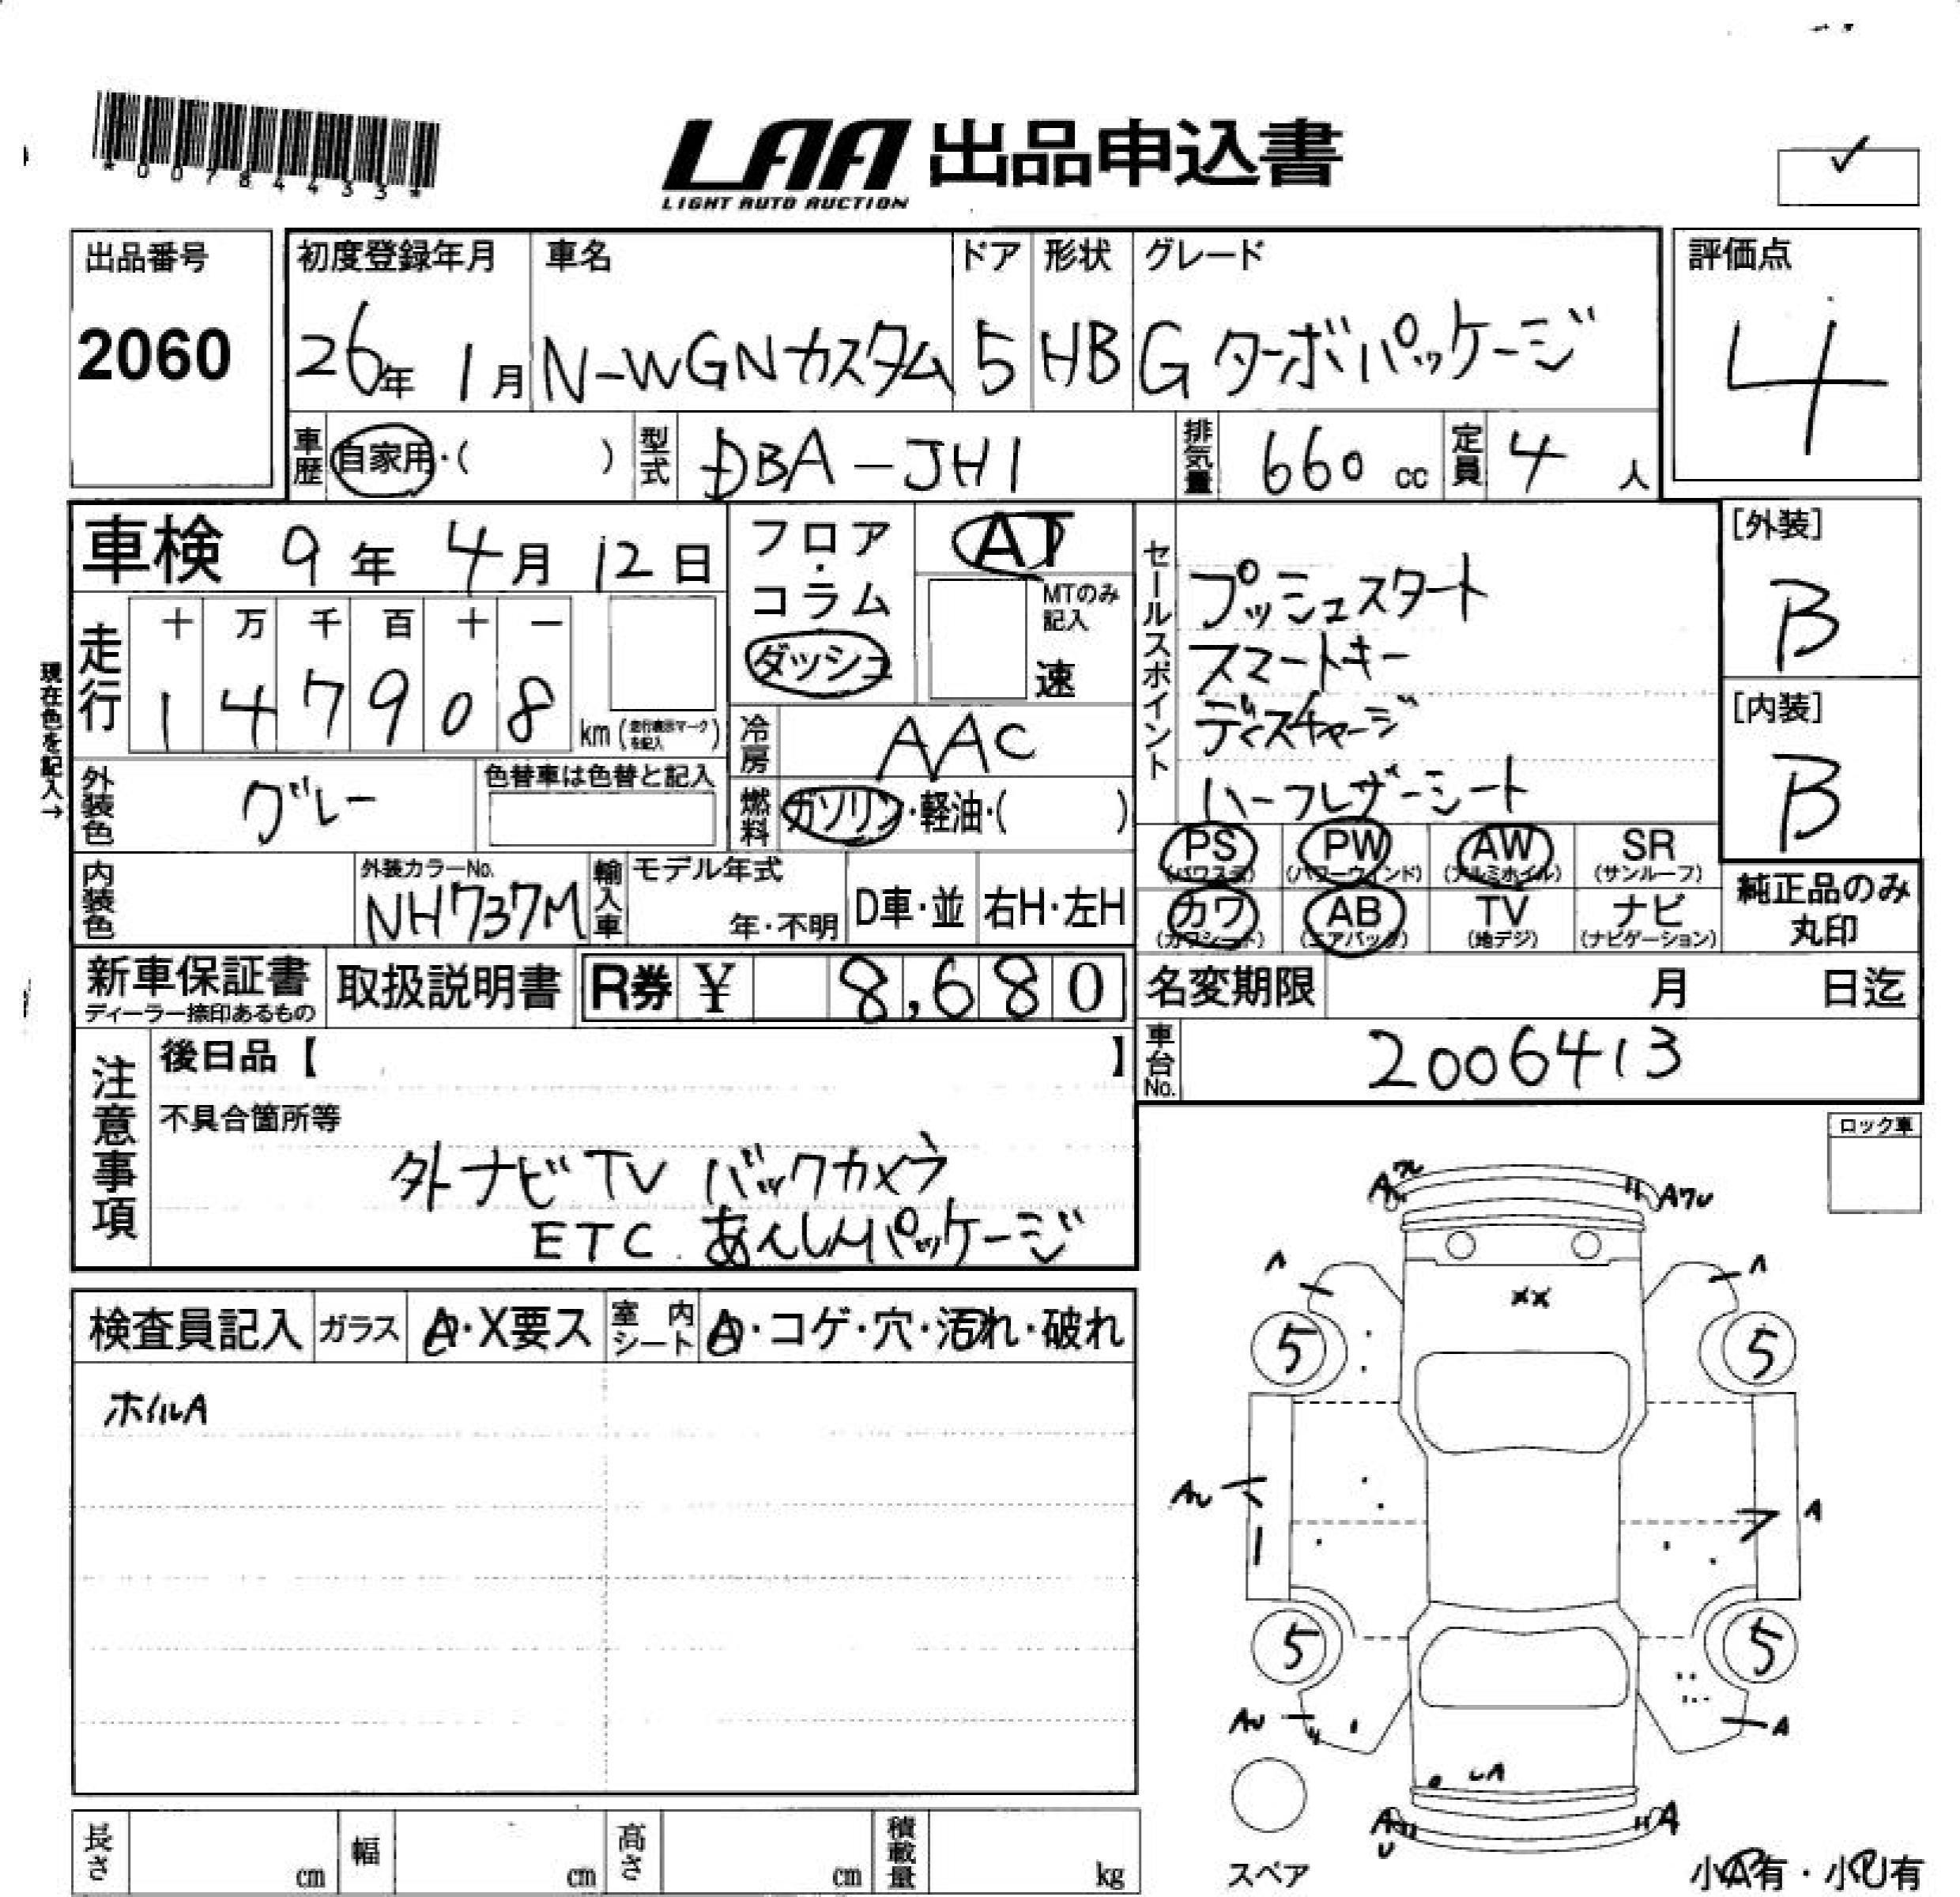 *0078433*
LAA 出品申込書
LIGHT AUTO AUCTION
✓
出品番号
2060
初度登録年月
26年 1月
車名
N-WGNカスタム
ドア
5
形状
HB
グレード
Gターボパッケージ
評価点
4
車歴
自家用・( )
型式
DBA-JH1
排気量
660 cc
定員
4 人
車検 9年 4月 12日
走行
十 万 千 百 十 一
1 4 7 9 0 8 km (走行表示マークを記入)
現在色を記入→
フロア・コラム
ダッシュ
AT
MTのみ記入
速
冷房
AAC
燃料
ガソリン・軽油・( )
セールスポイント
プッシュスタート
スマートキー
ディスチャージ
ハーフレザーシート
[外装]
B
[内装]
B
外装色
グレー
色替車は色替と記入
内装色
外装カラーNo.
NH737M
輸入車
モデル年式
年・不明
D車・並
右H・左H
PS (パワステ)
PW (パワーウィンド)
AW (アルミホイル)
SR (サンルーフ)
カワ (カワシート)
AB (エアバック)
TV (地デジ)
ナビ (ナビゲーション)
純正品のみ丸印
新車保証書
ディーラー捺印あるもの
取扱説明書
R券 ¥ 8,680
名変期限 月 日迄
車台No.
2006413
注意事項
後日品【 】
不具合箇所等
外ナビTV バックカメラ
ETC. あんしんパッケージ
ロック車
検査員記入
ガラス
A・X要ス
室内シート
A・コゲ・穴・汚れ・破れ
ホイルA
Aフレ
A
A
XX
5
5
AU
A
5
5
AU
A
UA
A
U
A
スペア
小A有・小U有
長さ cm
幅 cm
高さ cm
積載量 kg